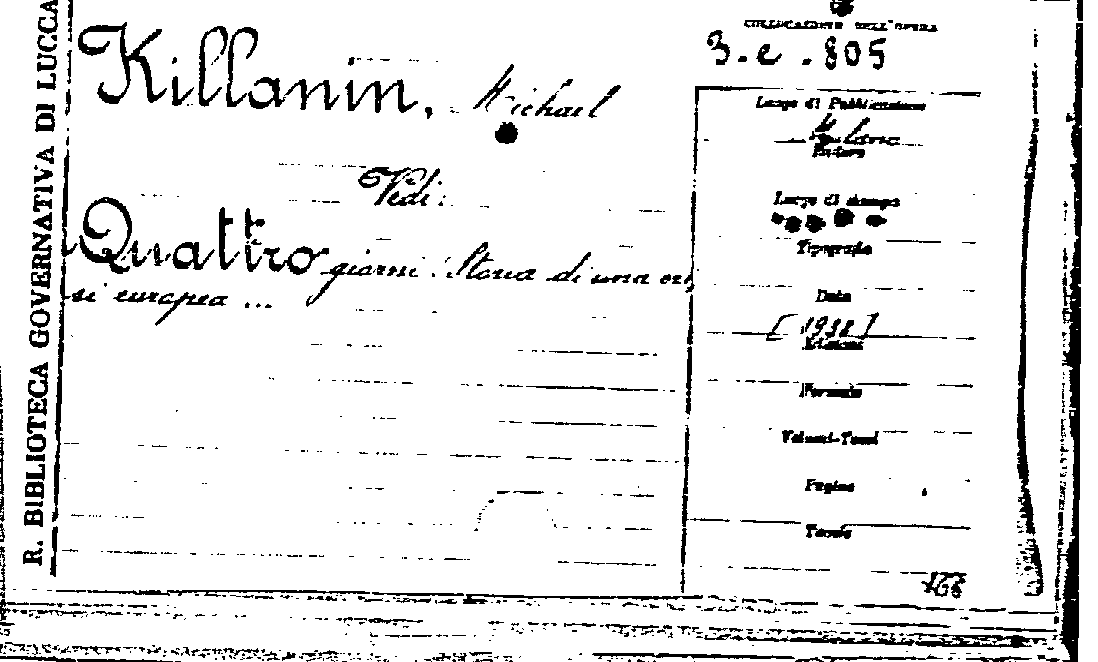 R. BIBLIOTECA GOVERNATIVA DI LUCCA
Killanin, Michael
Vedi:
Quattro giorni. Storia di una cri
si europea ...
COLLOCAZIONE DELL'OPERA
3.e.805
Luogo di Pubblicazione
Milano
Editore
Luogo di stampa
Tipografo
Data
[1938]
Edizioni
Formato
Volumi-Tomi
Pagine
Tavole